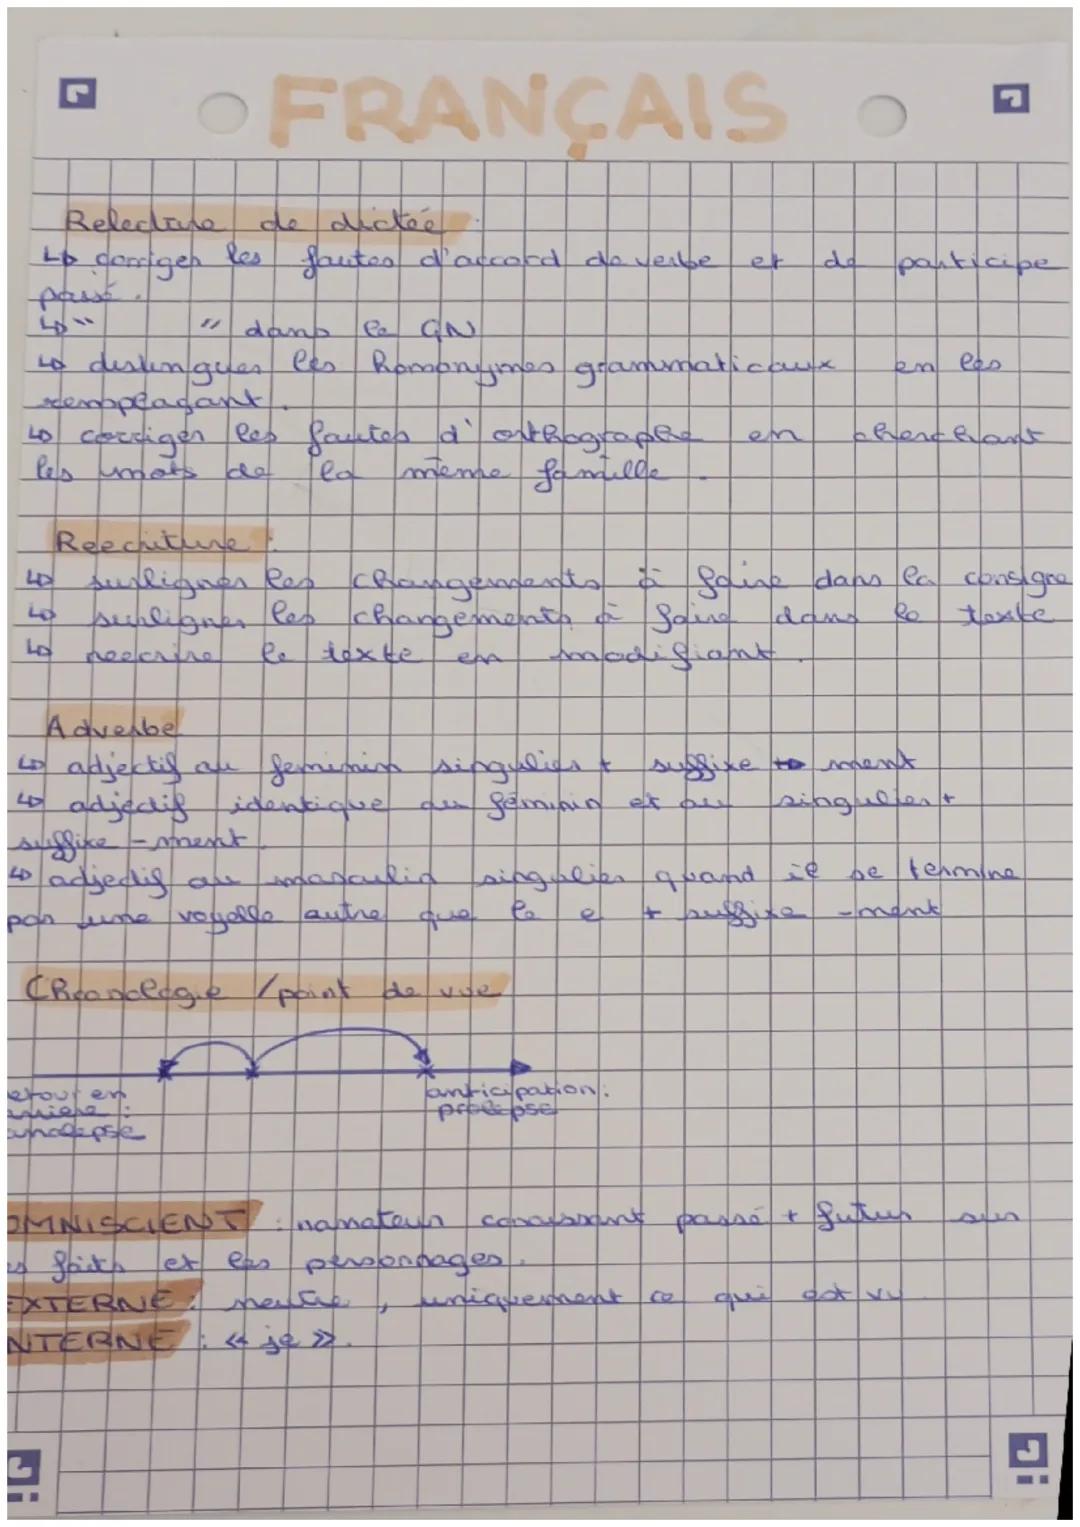 FRANÇAIS
Relecture de dictée :
↳ corriger les fautes d'accord de verbe et de participe
passé.
↳ " " dans le GN
↳ distinguer les homonymes grammaticaux en les
remplaçant.
↳ corriger les fautes d'orthographe en cherchant
les mots de la même famille.
Reecriture :
↳ surligner les changements à faire dans la consigne
↳ surligner les changements à faire dans le texte
↳ reecrire le texte en modifiant.
Adverbe
↳ adjectif au feminin singulier + suffixe ment
↳ adjectif identique au féminin et au singulier +
suffixe -ment.
↳ adjectif au masculin singulier quand il se termine
par une voyelle autre que le e + suffixe -ment
Chronologie / point de vue
etour en
arriere :
analepse
anticipation :
prolepse
OMNISCIENT : narrateur connaissant passé + futur sur
es faits et les personnages.
EXTERNE : neutre, uniquement ce qui est vu
NTERNE : « je ».